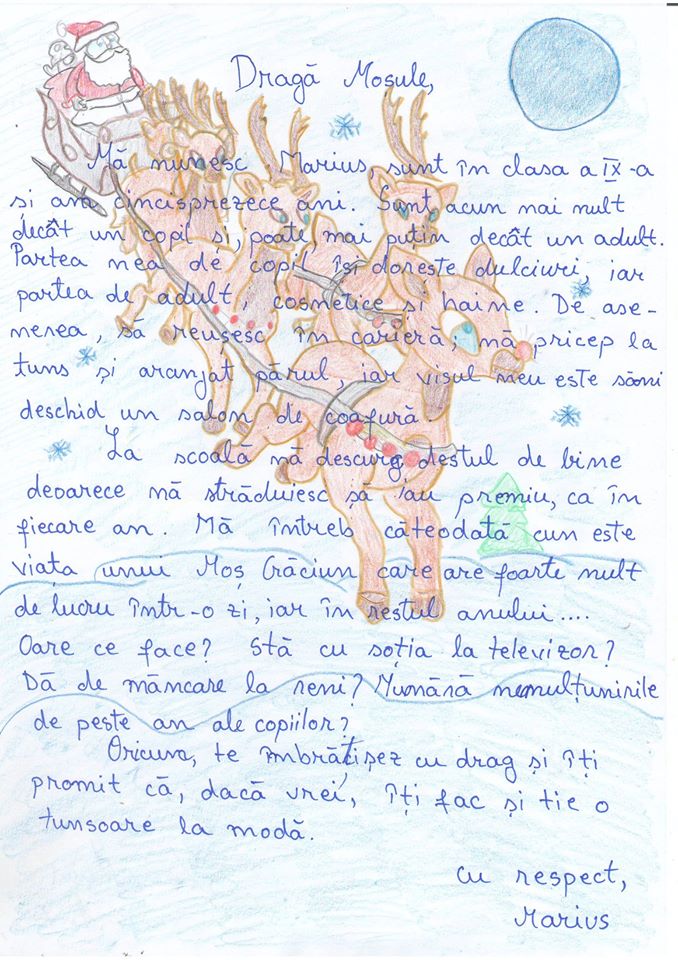 Dragă Mosule,
Mă nunesc Marius, sunt în clasa a IX-a
si am cincisprezece ani. Sunt acun nai nult
decât un copil si, poate mai putin decât un adult.
Partea nea de copil îsi doreste dulciuri, iar
partea de adult, cosnetice si haine. De ase-
nenea, să reușesc în carieră; mă pricep la
tuns și aranjat părul, iar visul meu este sămi
deschid un salon de coafură.
La scoală nă descurc destul de bine
deoarece nă străduiesc să iau premiu, ca în
fiecare an. Mă întreb câteodată cun este
viața unui Moș Crăciun care are foarte nult
de lucru într-o zi, iar în restul anului....
Oare ce face? Stă cu soția la televizor?
Dă de mâncare la reni? Numără nemulțunirile
de peste an ale copiilor?
Oricum, te îmbrățișez cu drag și îți
promit că, dacă vrei, îți fac și tie o
tunsoare la modă.
cu respect,
Marius